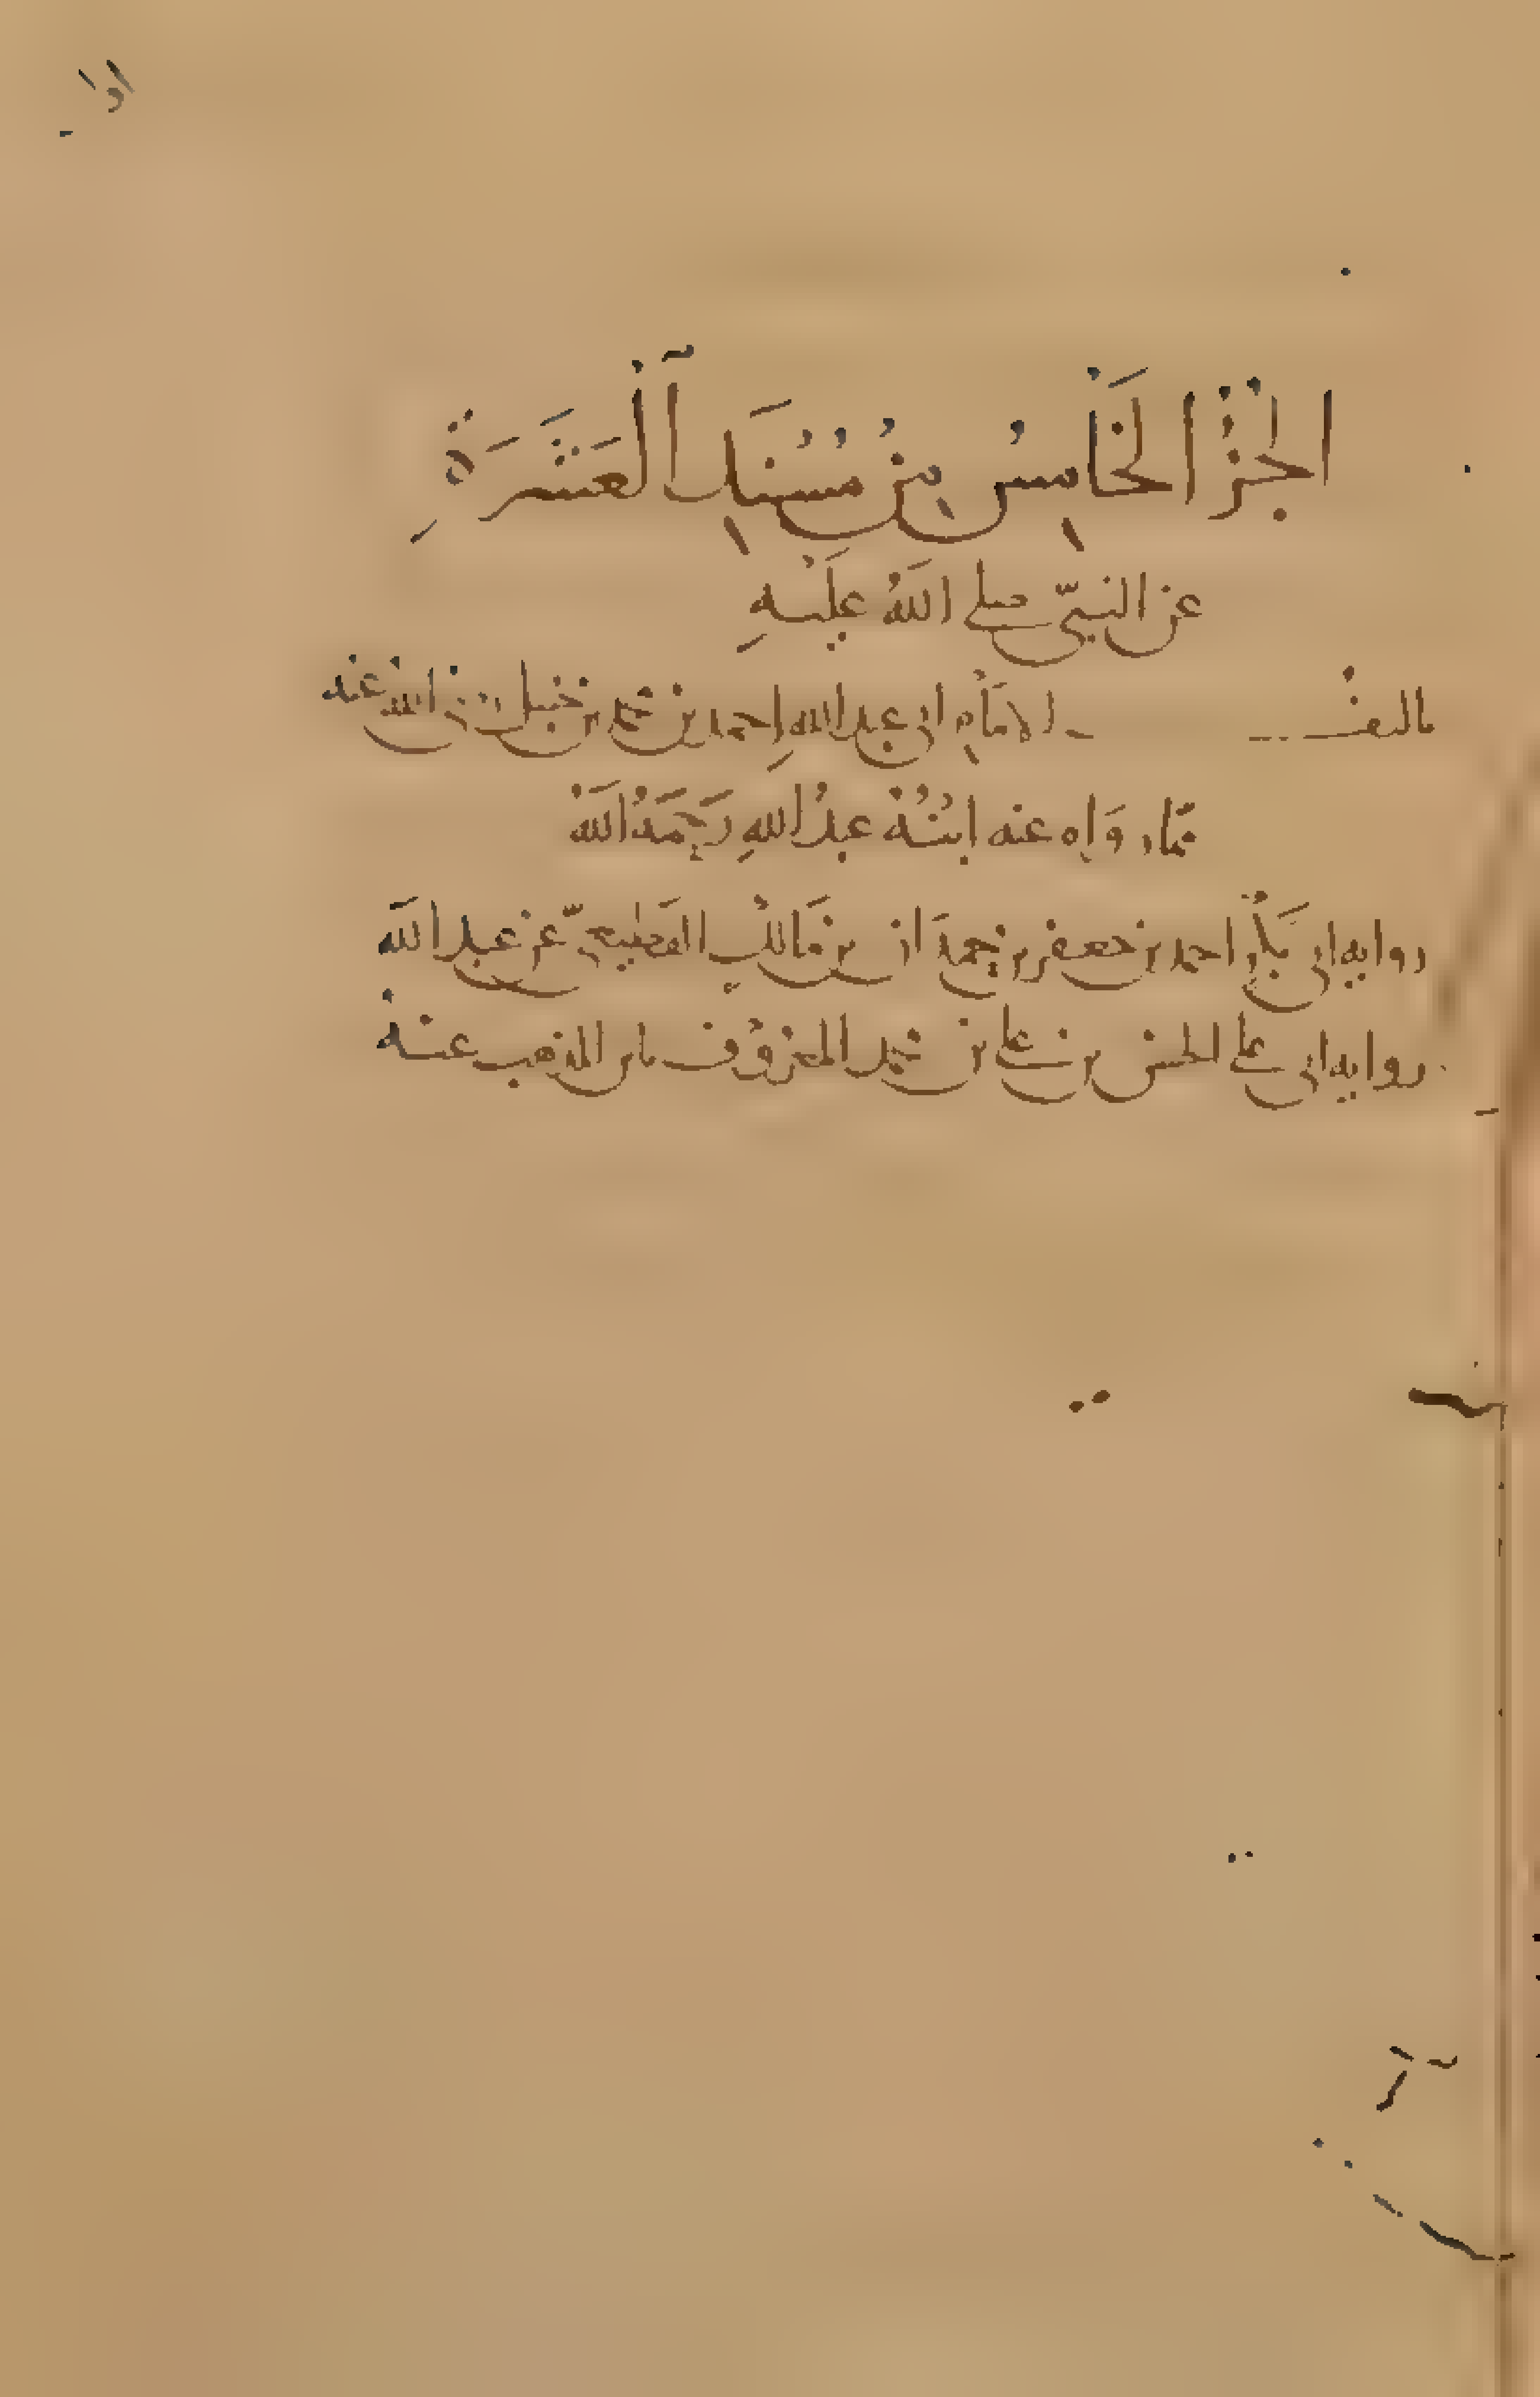 الجُزْءُ الخَامِسُ مِنْ مُسْنَدِ الْعَشَرَةِ
عن النبيّ صلى اللهُ عَلَيْهِ
تاليف الامَامِ ابى عبد اللهِ احمد بن محمد بن حَنْبل رضى الله عنه
ممّا رَوَاه عنه ابْنُهُ عبدُ اللهِ رَحِمَهُ اللَّه
روايه ابى بَكْرٍ احمد بن جعفر بن حمدَان بن مَالكٍ القَطِيعىّ عن عبد اللَّه
روايه ابى على الحسن بن على بن محمد المعْرُوْف بابن المذهب عنهُ